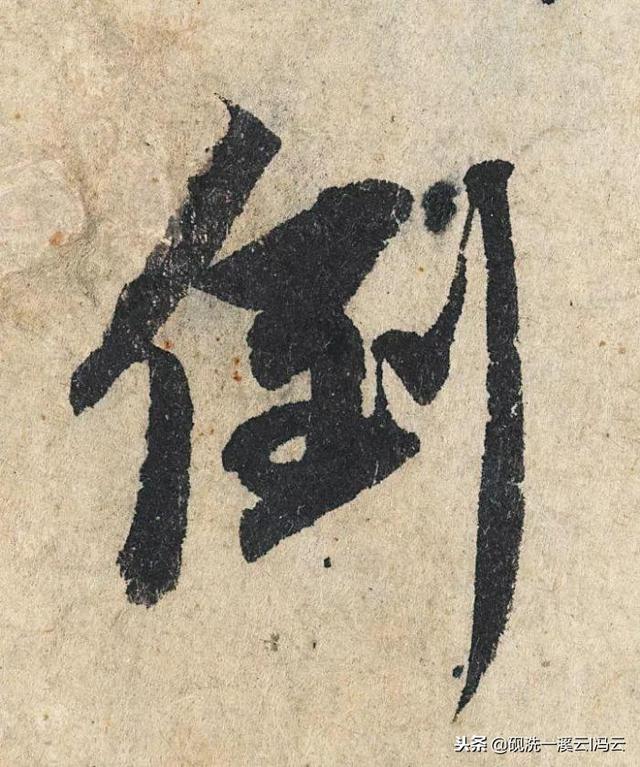 倒
头条 @砚洗一溪云|冯云